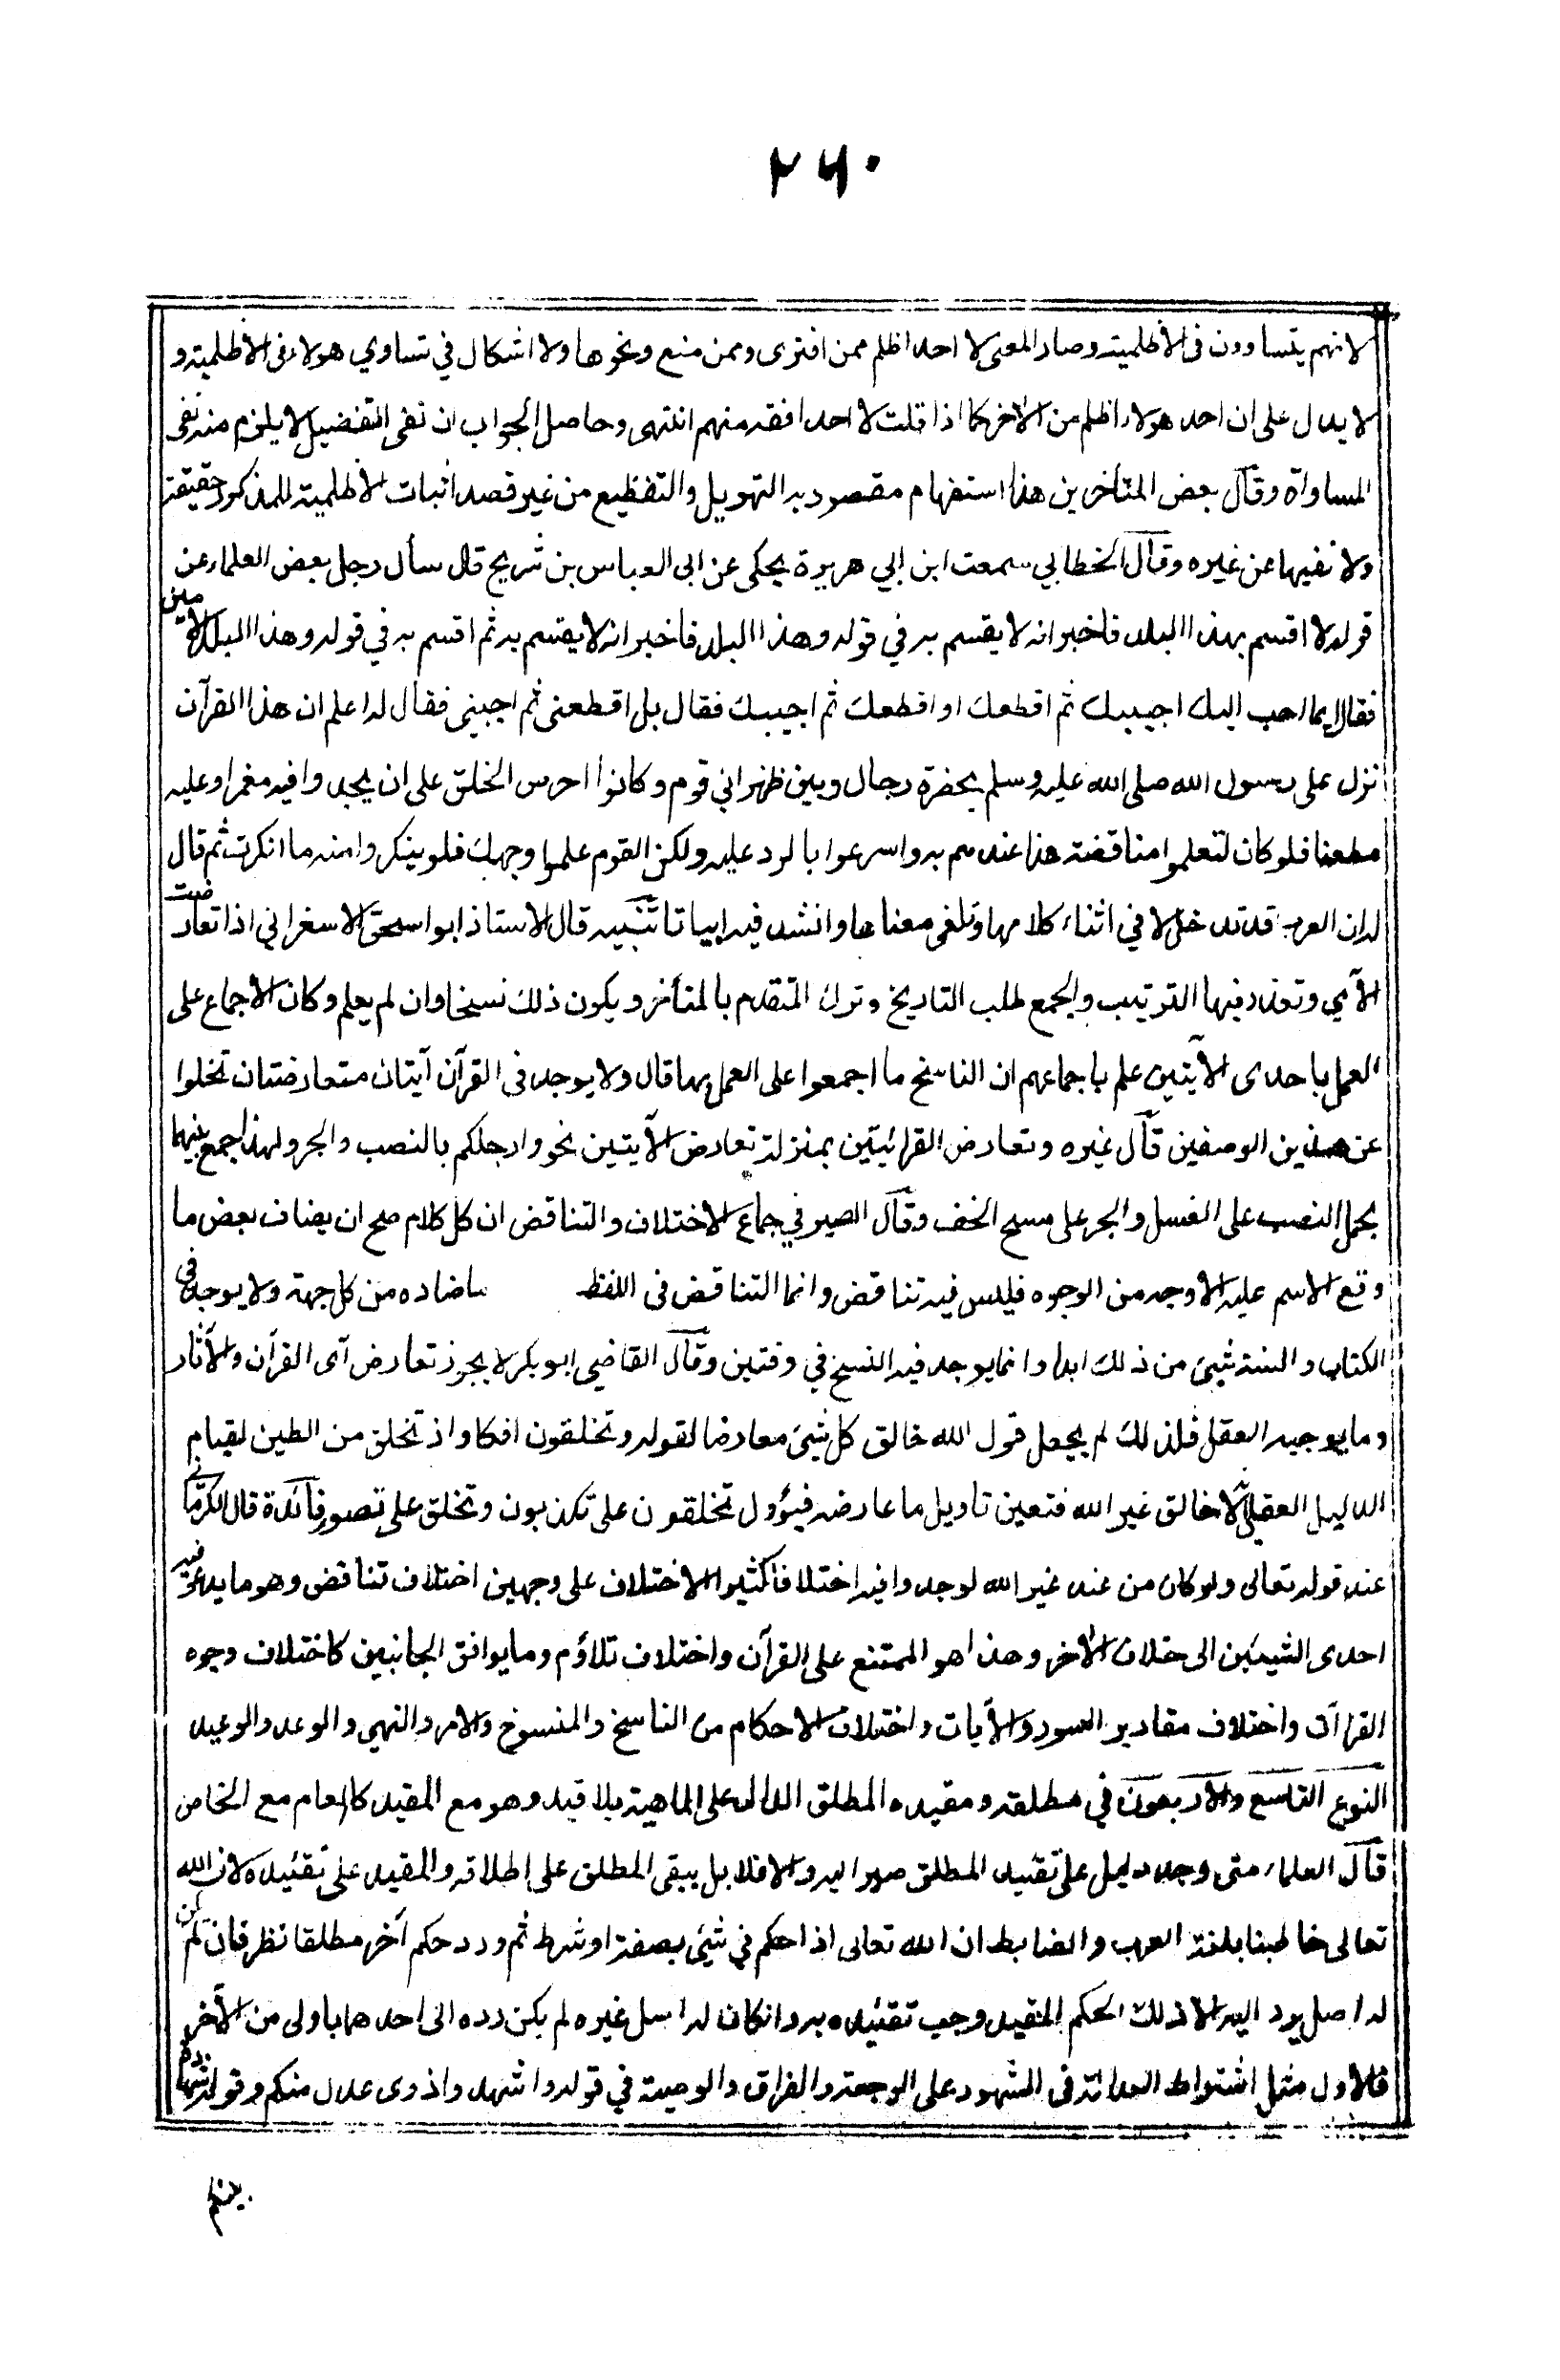 ٢٦٠
لانهم يتساوون فى الأظلمية وصار المعنى لا احد اظلم ممن افترى وممن منع ونحوها ولا اشكال في تساوي هولاء فى الأظلمية و
لا يدل على ان احد هولاء اظلم من الآخر كما اذا قلت لا احد افقه منهم انتهى وحاصل الجواب ان نفى التفضيل لا يلزم منه نفى
المساواة وقال بعض المتأخرين هذا استفهام مقصود به التهويل والتفظيع من غير قصد اثبات الأظلمية للمذكور حقيقة
ولا نفيها عن غيره وقال الخطابي سمعت ابن ابي هريرة يحكى عن ابى العباس بن شريح قال سأل رجل بعض العلماء عن
قوله لا اقسم بهذا البلد فاخبر انه لا يقسم به في قوله وهذا البلد فاخبر انه لا يقسم به ثم اقسم به في قوله وهذا البلد الامين
فقال ايما احب اليك اجيبك ثم اقطعك او اقطعك ثم اجيبك فقال بل اقطعنى ثم اجبني فقال له اعلم ان هذا القرآن
نزل على رسول الله صلى الله عليه وسلم بحضرة رجال وبين ظهراني قوم وكانوا احرس الخلق على ان يجدوا فيه مغمرا وعليه
مطعنا فلو كان لتعلموا مناقضة هذا عندهم به واسرعوا بالرد عليه ولكن القوم علموا وجهك فلو ينكروا منه ما انكرت ثم قال
له ان العرب قد تدخل لا في اثناء كلامها وتلغى معناها وانشد فيه ابياتا تنبيه قال الاستاذ ابو اسحق الاسفرانى اذا تعارضت
الآي وتعذر فيها الترتيب والجمع طلب التاريخ وترك المتقدم بالمتأخر ويكون ذلك نسخا وان لم يعلم وكان الاجماع على
العمل باحدى الآيتين علم باجماعهم ان الناسخ ما اجمعوا على العمل بها قال ولا يوجد فى القرآن آيتان متعارضتان تخلوا
عن هذين الوصفين قال غيره وتعارض القرائيتين بمنزلة تعارض الآيتين نحو وارجلكم بالنصب والجر ولهذا جمع بينهما
بحمل النصب على الغسل والجر على مسح الخف وقال الصيرفي جماع الاختلاف والتناقض ان كل كلام صح ان يضاف بعض ما
وقع الاسم عليه الا وجه من الوجوه فليس فيه تناقض وانما التناقض فى اللفظ ماضاده من كل جهة ولا يوجد فى
الكتاب والسنة شيئ من ذلك ابدا وانما يوجد فيه النسخ في وقتين وقال القاضي ابوبكر لا يجوز تعارض آى القرآن والآثار
وما يوجبه العقل فلذلك لم يجعل قول الله خالق كل شيئ معارضا لقوله وتخلقون افكا واذ تخلق من الطين لقيام
الدليل العقلى الا خالق غير الله فتعين تاويل ما عارضه فيؤول تخلقون على تكذبون وتخلق على تصور فائدة قال الكرمانى
عند قوله تعالى ولو كان من عند غير الله لوجدوا فيه اختلافا كثيرا الاختلاف على وجهين اختلاف تناقض وهو ما يدعو فيه
احدى الشيئين الى خلاف الآخر وهذا هو الممتنع على القرآن واختلاف تلاؤم وما يوافق الجانبين كاختلاف وجوه
القرآت واختلاف مقادير السور والآيات واختلاف الاحكام من الناسخ والمنسوخ والامر والنهي والوعد والوعيد
النوع التاسع والاربعون في مطلقه ومقيده المطلق الدال على الماهية بلا قيد وهو مع المقيد كالعام مع الخاص
قال العلماء متى وجد دليل على تقييد المطلق صير اليه والا فلا بل يبقى المطلق على اطلاقه والمقيد على تقئيده لان الله
تعالى خاطبنا بلغة العرب والضابط ان الله تعالى اذا حكم في شيئ بصفة او شرط ثم ورد حكم آخر مطلقا نظر فان لم يكن
له اصل يرد اليه الا ذلك الحكم المقيد وجب تقئيده به وانكان له اسل غيره لم يكن رده الى احدهما باولى من الآخر
فالاول مثل اشتراط العدالة فى الشهود على الرجعة والفراق والوصية في قوله واشهدوا ذوى عدل منكم وقوله شهادة
بينكم